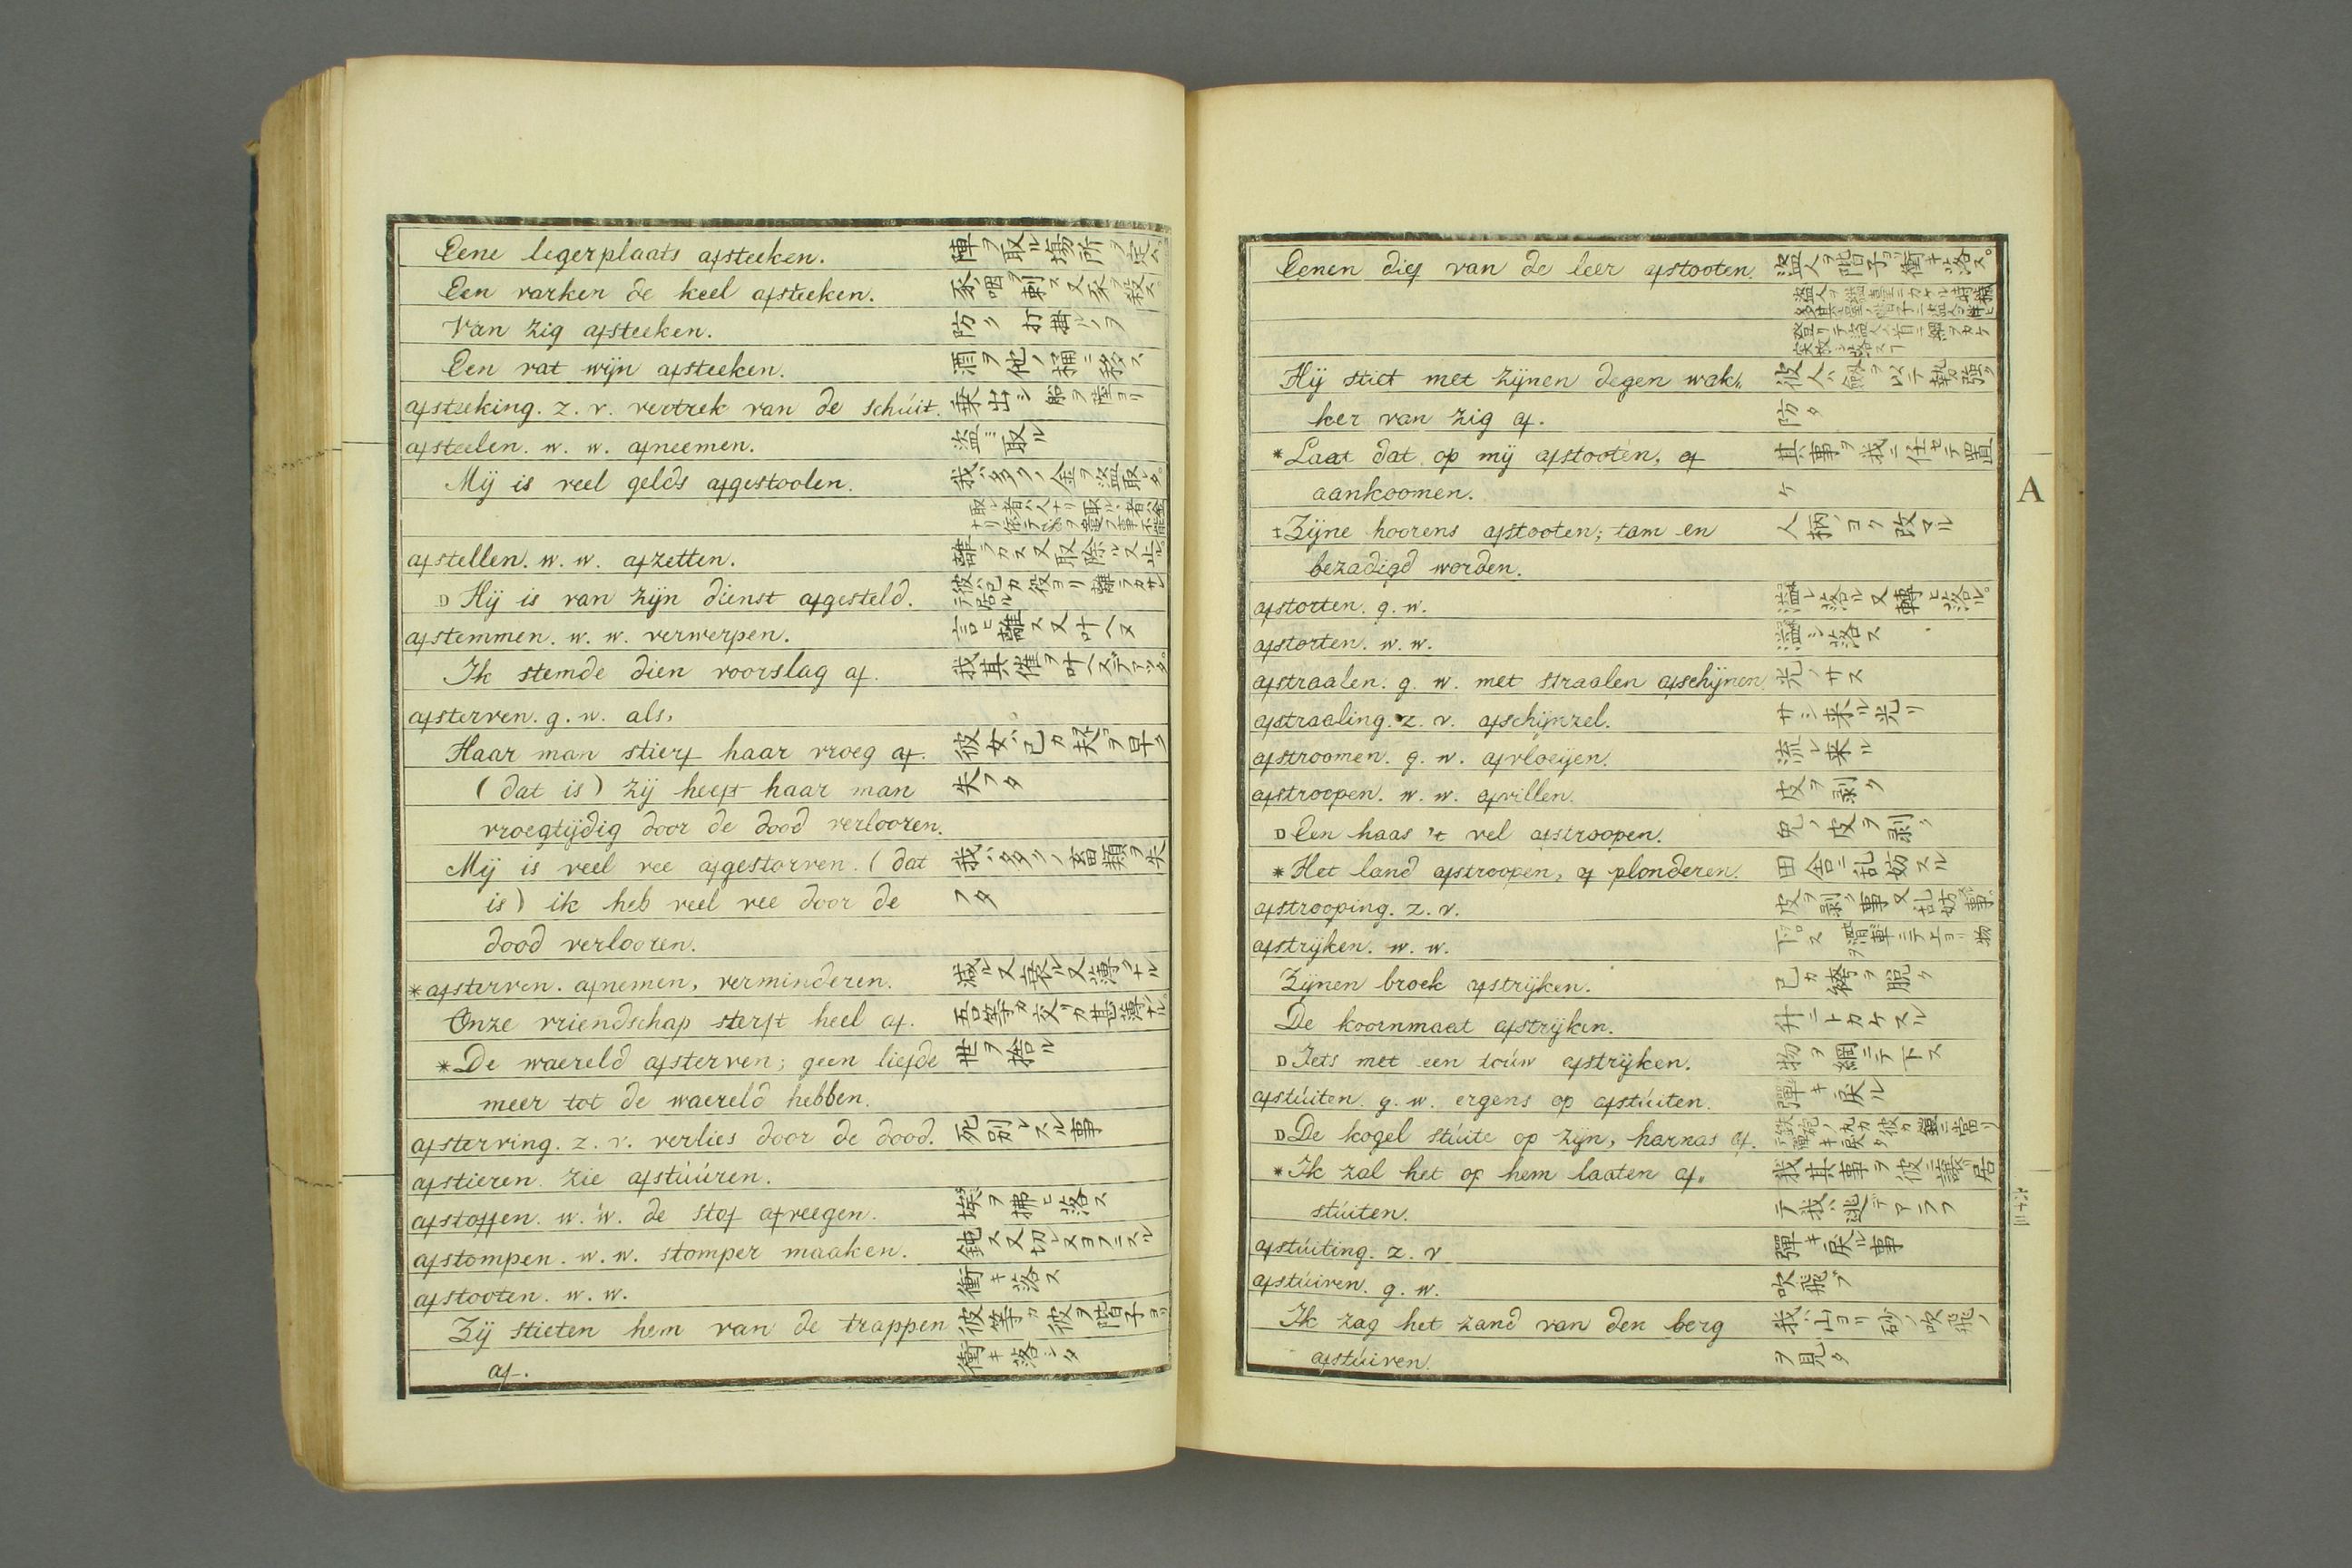 Eene legerplaats afsteeken. 陣ヲ取ル場所ヲ定ム。
Een varken de keel afsteeken. 豕ノ咽ヲ刺ス又豕ヲ殺ス。
Van zig afsteeken. 防ク 打掛ルヲ
Een vat wijn afsteeken. 酒ヲ他ノ桶ニ移ス
afsteeking. z. v. vertrek van de schúit. 乗出シ 船ヲ岸ヨリ
afsteelen. w. w. afneemen. 盗ミ取ル
Mij is veel gelds afgestoolen. 我ハ多クノ金ヲ盗取レタ。
afstellen. w. w. afzetten. 離ラカス又取除ル又止ル。
D Hij is van zijn dienst afgesteld. 彼ハ己カ役ヨリ離ラカサレテ居ル
afstemmen. w. w. verwerpen. 言ヒ離ス又叶ヘヌ
Ik stemde dien voorslag af. 我其催ヲ叶ヘズデアツタ。
afsterven. g. w. als,
Haar man stierf haar vroeg af. 彼女ハ己カ夫ヲ早ク
(dat is) zij heeft haar man 失フタ
vroegtijdig door de dood verlooren.
Mij is veel vee afgestorven. (dat 我ハ多クノ畜類ヲ失
is) ik heb veel vee door de フタ
dood verlooren.
*afsterven. afnemen, verminderen. 減ル又衰ル又薄クナル
Onze vriendschap sterft heel af. 吾等カ交リカ甚薄クナル。
*De waereld afsterven; geen liefde 世ヲ捨ル
meer tot de waereld hebben.
afsterving. z. v. verlies door de dood. 死別レスル事
afstieren. zie afstúúren.
afstoffen. w. w. de stof afveegen. 埃ヲ拂ヒ落ス
afstompen. w. w. stomper maaken. 鈍ス又切レヌヨフニスル
afstooten. w. w. 衝キ落ス
Zij stieten hem van de trappen 彼等カ彼ヲ階子ヨリ
af. 衝キ落シタ
Eenen dief van de leer afstooten. 盗人ヲ階子ヨリ衝キ落ス。
Hij stiet met zijnen degen wak„ 彼人ハ劔ヲ以テ勢強ク
ker van zig af. 防タ
*Laat dat op mij afstooten, of 其事ヲ我ニ任セテ置
aankoomen. ケ
‡Zijne hoorens afstooten; tam en 人柄ノヨク改マル
bezadigd worden.
afstorten. g. w. 溢レ落ル又轉ヒ落ル。
afstorten. w. w. 溢シ落ス
afstraalen. g. w. met straalen afschijnen. 光ノサス
afstraaling. z. v. afschijnzel. サシ来ル光リ
afstroomen. g. w. afvloeijen. 流レ来ル
afstroopen. w. w. afvillen. 皮ヲ剥ク
D Een haas 't vel afstroopen. 兔ノ皮ヲ剥ク
*Het land afstroopen, of plonderen. 田舎ニ乱妨スル
afstrooping. z. v. 皮ヲ剥ク事又乱妨スル事。
afstrijken. w. w. 下ロス 物ヲ滑車ニテ上ヨリ
Zijnen broek afstrijken. 己カ袴ヲ脱ク
De koornmaat afstrijken. 升ニトカケスル
D Iets met een toúw afstrijken. 物ヲ綱ニテ下ス
afstúiten. g. w. ergens op afstúiten. 彈キ戻ル
D De kogel stúite op zijn, harnas af. 鉄砲ノ丸カ彼カ鎧ニ當リテ彈キ戻タ
*Ik zal het op hem laaten af„ 我其事ヲ彼ニ譲リ居
stúiten. テ我ハ逃デアラフ
afstúiting. z. v 彈キ戻ル事
afstúiven. g. w. 吹飛ブ
Ik zag het zand van den berg 我ハ山ヨリ砂ノ吹飛ノ
afstúiven. ヲ見タ
A